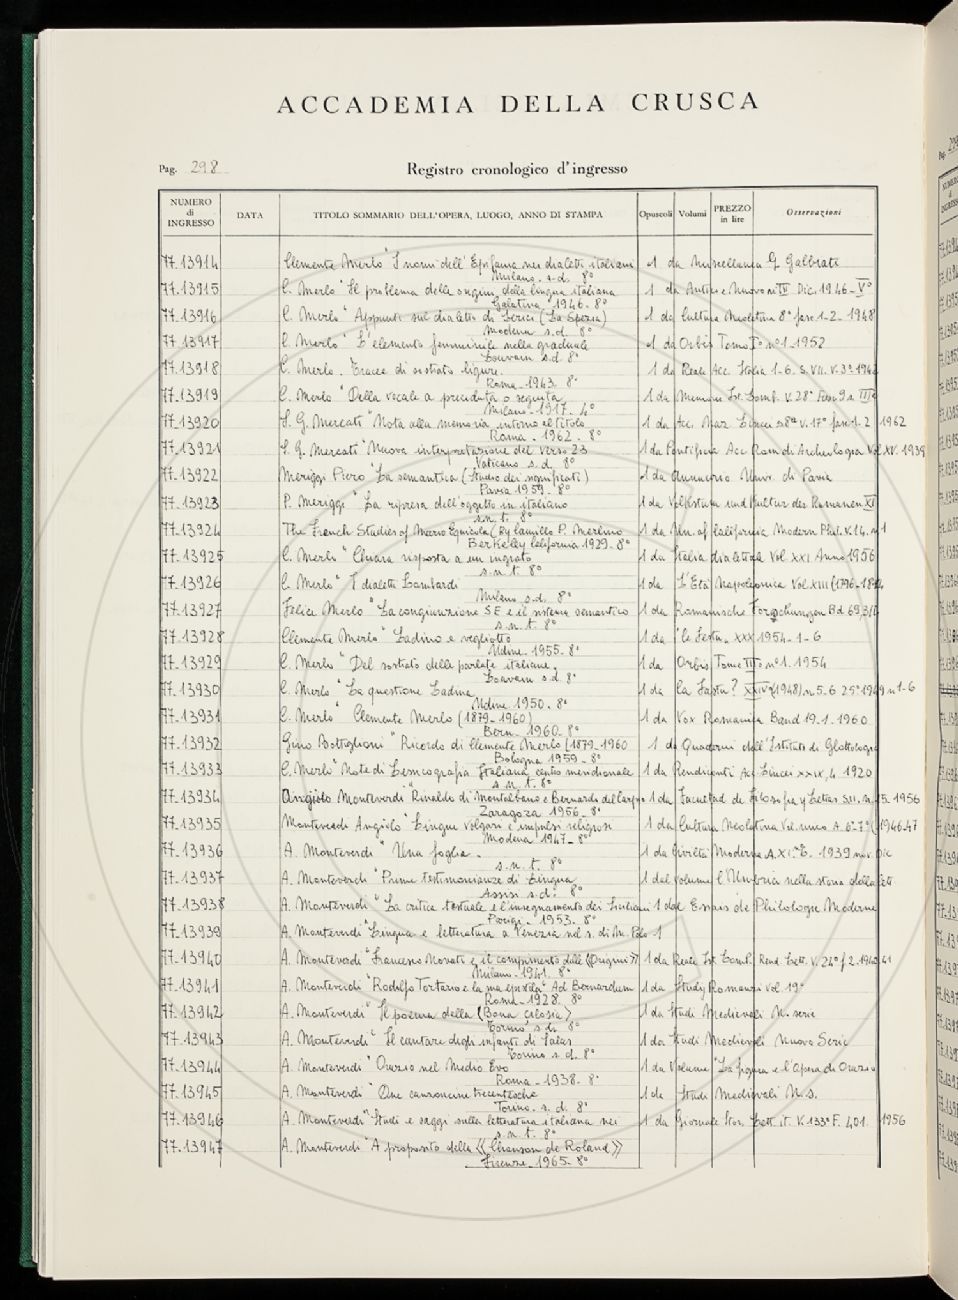 ACCADEMIA DELLA CRUSCA
Pag. 298
Registro cronologico d'ingresso
NUMERO di INGRESSO DATA TITOLO SOMMARIO DELL'OPERA, LUOGO, ANNO DI STAMPA Opuscoli Volumi PREZZO in lire Osservazioni
77.13914 Clemente Merlo "I nomi dell'Epifania nei dialetti italiani 1 da Miscellanea G. Galbiati
Milano. s.d. 8°
77.13915 C. Merlo "Il problema della origine della lingua italiana 1 da Antico e Nuovo Dic. 1946 - V°
Galatina 1946. 8°
77.13916 C. Merlo "Appunti sul dialetto di Lerici (La Spezia) 1 da Cultura Neolatina 8° fasc. 1-2 - 1948
Modena s.d. 8°
77.13917 C. Merlo "L'elemento femminile nella graduale 1 da Orbis Tomo I° n° 1 1952
Louvain s.d. 8°
77.13918 C. Merlo. Tracce di sostrato ligure. 1 da Reale Acc. Italia 1-6. S. VII. V. 3° 1942
Roma 1943. 8°
77.13919 C. Merlo "Della vocale a preceduta o seguita 1 da Memorie Ist. Lomb. V. 28° Fasc 9
Milano - 1917. 4°
77.13920 S. G. Mercati "Nota alla memoria intorno al titolo 1 da Acc. Naz. Lincei s. 8ª v. 17° fasc. 1-2 1962
Roma - 1962 - 8°
77.13921 S. G. Mercati "Nuova interpretazione del verso 23 1 da Pontificia Acc. Rom. di Archeologia Vol. XV. 1939
Vaticano s.d. 8°
77.13922 Meriggi Piero "La semantica (Studio dei significati) 1 da Annuario Univ. di Pavia
Pavia 1959. 8°
77.13923 P. Meriggi "La ripresa dell'oggetto in italiano 1 da Volkstum und Kultur der Romanen XI
s.n.t. 8°
77.13924 The French Studies of Mario Equicola (By Camillo P. Merlino 1 da Un. of California Modern Phil. V. 14. n 1
Berkeley California 1929. 8°
77.13925 C. Merlo "Chiara risposta a un ingrato 1 da Italia dialettale Vol. XXI Anno 1956
s.n.t. 8°
77.13926 C. Merlo "I dialetti Lombardi 1 da L'Età Napoleonica Vol. XIII (1796-1814
Milano s.d. 8°
77.13927 Felice Merlo "La congiunzione SE e il sistema semantico 1 da Romanische Forschungen Bd 69,3/4
s.n.t. 8°
77.13928 Clemente Merlo "Ladino e vegliotto 1 da Ce Fastu XXX 1954 - 1-6
Udine 1955. 8°
77.13929 C. Merlo "Del sostrato delle parlate italiane. 1 da Orbis Tome III n° 1. 1954
Louvain s.d. 8°
77.13930 C. Merlo "La questione Ladina 1 da Ce Fastu? XXIV (1948) n. 5-6 25° 1949 n 1-6
Udine 1950. 8°
77.13931 C. Merlo" Clemente Merlo (1879-1960) 1 da Vox Romanica Band 19.1-1960
Bern. 1960. 8°
77.13932 Gino Bottiglioni "Ricordo di Clemente Merlo (1879-1960 1 da Quaderni dell'Istituto di Glottologia
Bologna 1959 - 8°
77.13933 C. Merlo "Note di Lessicografia Italiana centro meridionale 1 da Rendiconti Ac. Lincei XXIX, 4. 1920
s.n.t. 8°
77.13934 Angiolo Monteverdi "Rinaldo di Montalbano e Bernardo del Carpio 1 da Facultad de Filosofia y Letras 1956
Zaragoza 1956 - 8°
77.13935 Monteverdi Angiolo "Lingue volgari e impulsi religiosi 1 da Cultura Neolatina Vol. unico A. 6°-7° (1946-47
Modena 1947 - 8°
77.13936 A. Monteverdi "Una foglia. 1 da Civiltà Moderna A. XI. 6. 1939 nov. Dic
s.n.t. 8°
77.13937 A. Monteverdi "Prime testimonianze di Lingua 1 dal volume l'Umbria nella storia della lett
Assisi s.d. 8°
77.13938 A. Monteverdi "La critica testuale e l'insegnamento dei Siciliani 1 dal Essais de Philologie Moderne
Parigi - 1953. 8°
77.13939 A. Monteverdi "Lingua e letteratura a Venezia nel s. di M. Polo 1
77.13940 A. Monteverdi "Francesco Novati e il compimento delle "Origini" 1 da Reale Ist. Lomb. Rend. Lett. V. 74° f 2. 1940-41
Milano - 1941. 8°
77.13941 A. Monteverdi "Rodolfo Tortario e la sua epistola "Ad Bernardum 1 da Studj Romanzi vol. 19°
Roma - 1928. 8°
77.13942 A. Monteverdi "Il poema della (Bona cilosia) 1 da Studi Medievali N. serie
Torino s.d. 8°
77.13943 A. Monteverdi "Il cantare degli infanti di Salas 1 da Studi Medievali Nuova Serie
Torino s.d. 8°
77.13944 A. Monteverdi "Orazio nel Medio Evo 1 da Volume "La figura e l'opera di Orazio
Roma - 1938. 8°
77.13945 A. Monteverdi "Due canzoncine trecentesche 1 da Studi Medievali N.s.
Torino. s.d. 8°
77.13946 A. Monteverdi "Studi e saggi sulla letteratura italiana nei 1 da Giornale Stor. Lett. it. V. 133° F. 401. 1956
s.n.t. 8°
77.13947 A. Monteverdi "A proposito della «Chanson de Roland»
Firenze 1965. 8°